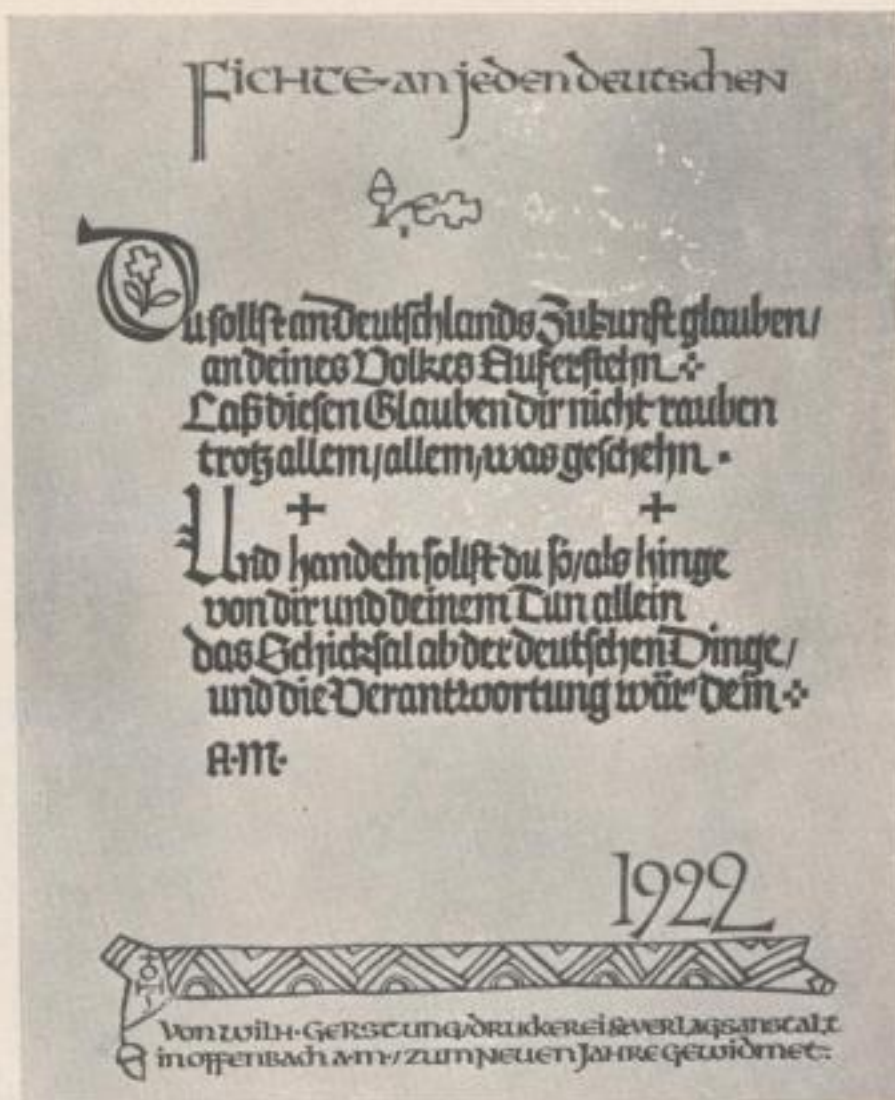 FICHTE an jeden deutschen
Du sollst an Deutschlands Zukunft glauben/
an deines Volkes Auferstehn
Laß diesen Glauben dir nicht rauben
trotz allem/allem, was geschehn.
Und handeln sollst du so/als hinge
von dir und deinem Tun allein
das Schicksal ab der deutschen Dinge/
und die Verantwortung wär' dein
A·M·
1922
Von Wilh·Gerstung/Druckerei&Verlagsanstalt
in Offenbach a·m·/zum Neuen Jahre gewidmet: